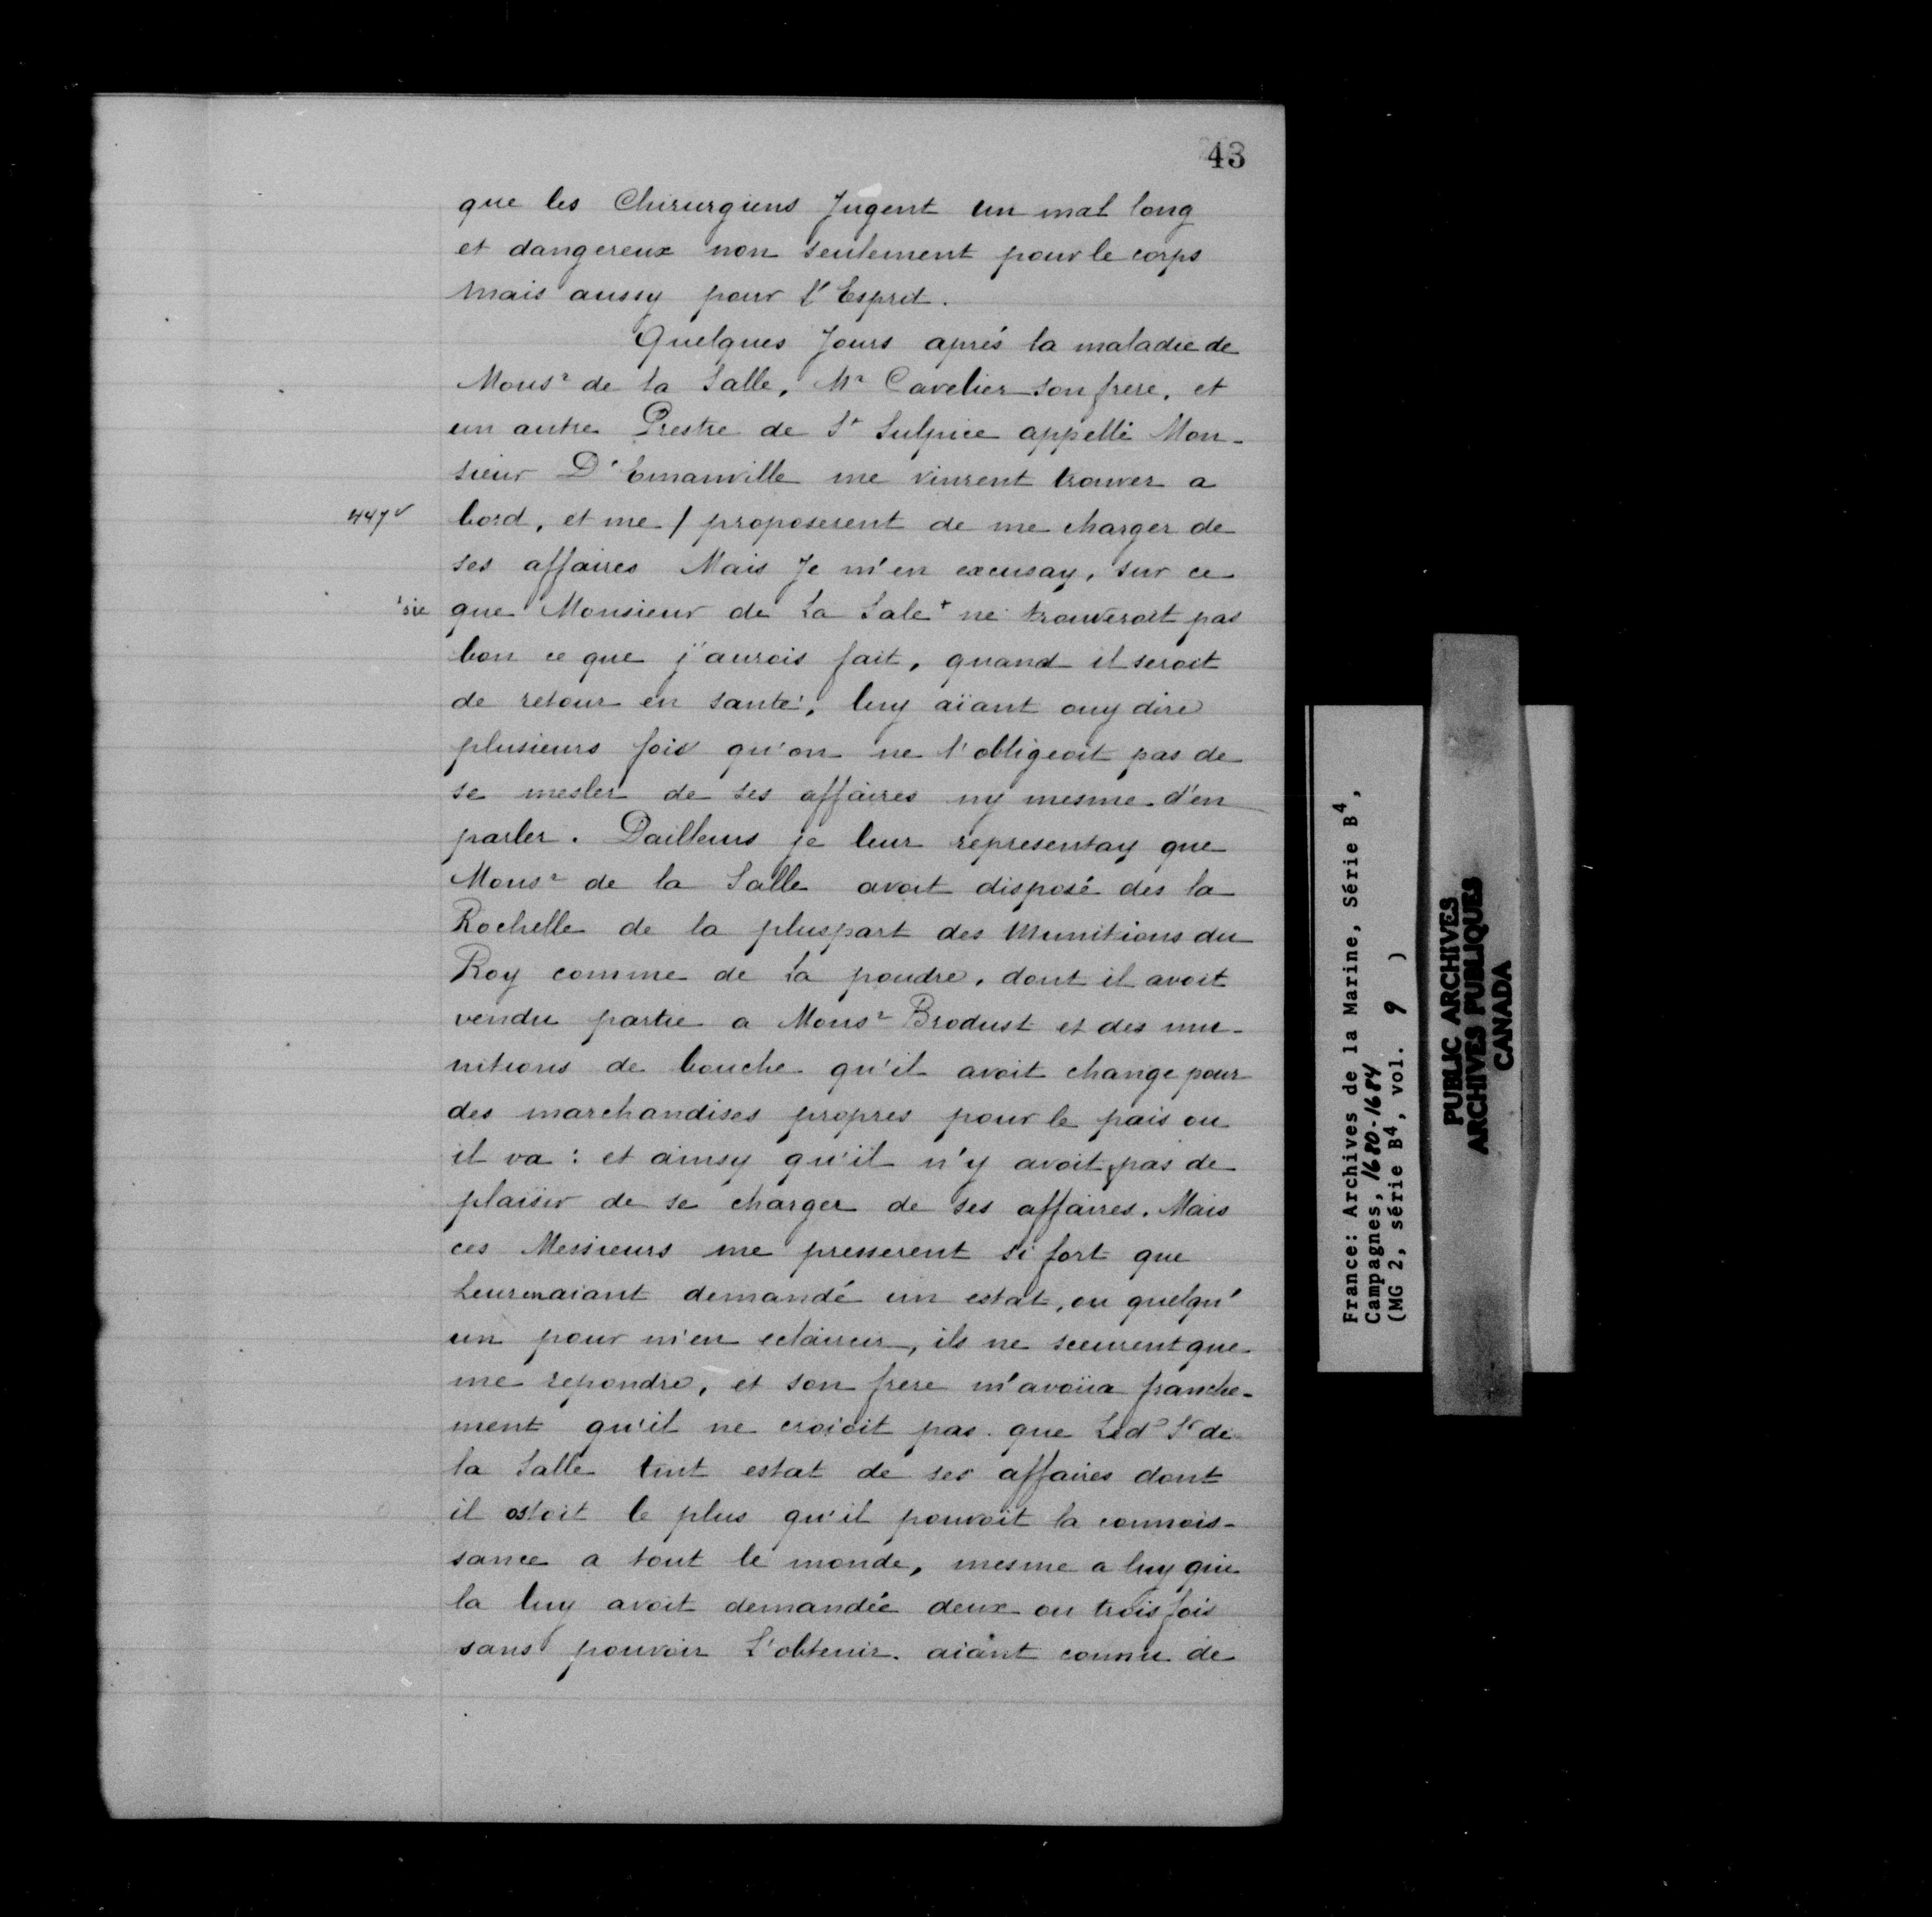 43
que les Chirurgiens Jugent un mal long
et dangereux non seulement pour le corps
mais aussy pour l'Esprit.
Quelques Jours aprés la maladie de
Monsr de la Salle, Mr Cavelier son frere, et
un autre Prestre de St Sulpice appellé Mon-
sieur D'Emanville me vinrent trouver a
447v bord, et me / proposerent de me charger de
ses affaires Mais Je m'en excusay, sur ce
+sic que Monsieur de La Sale + ne trouveroit pas
bon ce que j'aurois fait, quand il seroit
de retour en santé, luy aïant ouy dire
plusieurs fois qu'on ne l'obligeoit pas de
se mesler de ses affaires ny mesme d'en
parler. Dailleurs je leur representay que
Monsr de la Salle avoit disposé des la
Rochelle de la pluspart des Munitions du
Roy comme de la poudre, dont il avoit
vendu partie a Monsr Brodust et des mu-
nitions de bouche qu'il avoit change pour
des marchandises propres pour le pais ou
il va : et ainsy qu'il n'y avoit pas de
plaisir de se charger de ses affaires. Mais
ces Messieurs me presserent si fort que
Leur en aiant demandé un estat, ou quelqu'
un pour m'en eclaircir, ils ne sceurent que
me repondre, et son frere m'avoüa franche-
ment qu'il ne croioit pas que Led Sr de
la Salle tint estat de ses affaires dont
il ostoit le plus qu'il pouvoit la connois-
sance a tout le monde, mesme a luy qui
la luy avoit demandée deux ou trois fois
sans pouvoir L'obtenir. aiant connu de
France: Archives de la Marine, Série B4,
Campagnes, 1680-1684
(MG 2, série B4, vol. 9 )
PUBLIC ARCHIVES
ARCHIVES PUBLIQUES
CANADA